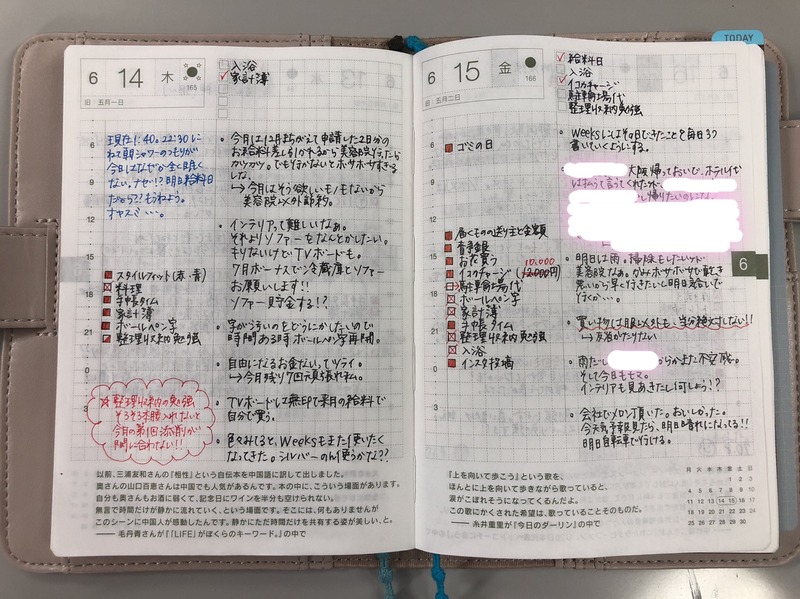 6 14 木
165
旧：五月一日
入浴
家計簿
現在1:40。22:30に
ねて朝シャワーのつもりが
今日はなぜか全く眠く
ない。ナゼ!?明日給料日
だから??もうねよう。
オヤスミ…。
スタイルフィット(赤・青)
料理
手帳タイム
家計簿
ボールペン字
整理収納勉強
☆整理収納の勉強
そろそろ本腰入れないと
今月の第1回添削が
間に合わない!!
今月は12月まちがえて申請した2日分の
お給料差し引かれるから美容院行ったら
カツカツ。でも行かないとボサボサすぎる
しな。
→今月はそう欲しいモノもないから
美容院以外節約。
インテリアって難しいなぁ。
それよりソファーをなんとかしたい。
キリないけどTVボードも。
7月ボーナスで冷蔵庫とソファー
お願いします!!
ソファー貯金する!?
字が汚いのをどうにかしたいので
時間ある時ボールペン字再開。
自由になるお金ないってツライ。
→今月残り 頑張れ私。
TVボードは 来月の給料で
自分で買う。
Weeksもまた使いたく
なってきた。シルバーの 使うかな??
6
9
12
15
18
21
0
3
以前、三浦友和さんの『相性』という自伝本を中国語に訳して出しました。
奥さんの山口百恵さんは中国でも人気があるんです。本の中に、こういう場面があります。
自分も奥さんもお酒に弱くて、記念日にワインを半分も空けられない。
無言で時間だけが静かに流れていく、という場面です。そこには、何もありませんが
このシーンに中国人が感動したんです。静かにただ時間だけを共有する姿が美しい、と。
──毛丹青さんが『「LIFE」がぼくらのキーワード。』の中で
TODAY
6 15 金
166
旧：五月二日
給料日
入浴
イコカチャージ
駐輪場代
整理収納勉強
ゴミの日
届くもの送り主と金額
青手銀
お花買う
10,000
イコカチャージ(2,000円)
駐輪場代
ボールペン字
家計簿
手帳タイム
整理収納勉強
入浴
インスタ投稿
Weeksにはその日できたことを毎日3つ
書いていくようにする。
大阪帰っておいで、ホテル代
払うって言ってくれたが、
帰りたいのにな。
明日は雨。掃除もしたいケド
美容院なぁ。かみボサボサで
早く行きたいし明日 で
行くか…。
買い物は服以外も、当分絶対しない!!
→ がたりない
雨だし からかまた不安定。
そして今日もモヤ。
インテリアも見あきたし何しよう!?
会社でメロン頂いた。おいしかった。
今天気予報見たら、明日晴れになってる!!
明日自転車で行ける。
6
9
12
15
18
21
0
3
6
『上を向いて歩こう』という歌を、
ほんとに上を向いて歩きながら歌っていると、
涙がこぼれそうになってくるんだよ。
この歌にかくされた希望は、歌っていることそのものだ。
──糸井重里が『今日のダーリン』の中で
月 火 水 木 金 土 日
1 2 3
4 5 6 7 8 9 10
11 12 13 14 15 16 17
18 19 20 21 22 23 24
25 26 27 28 29 30